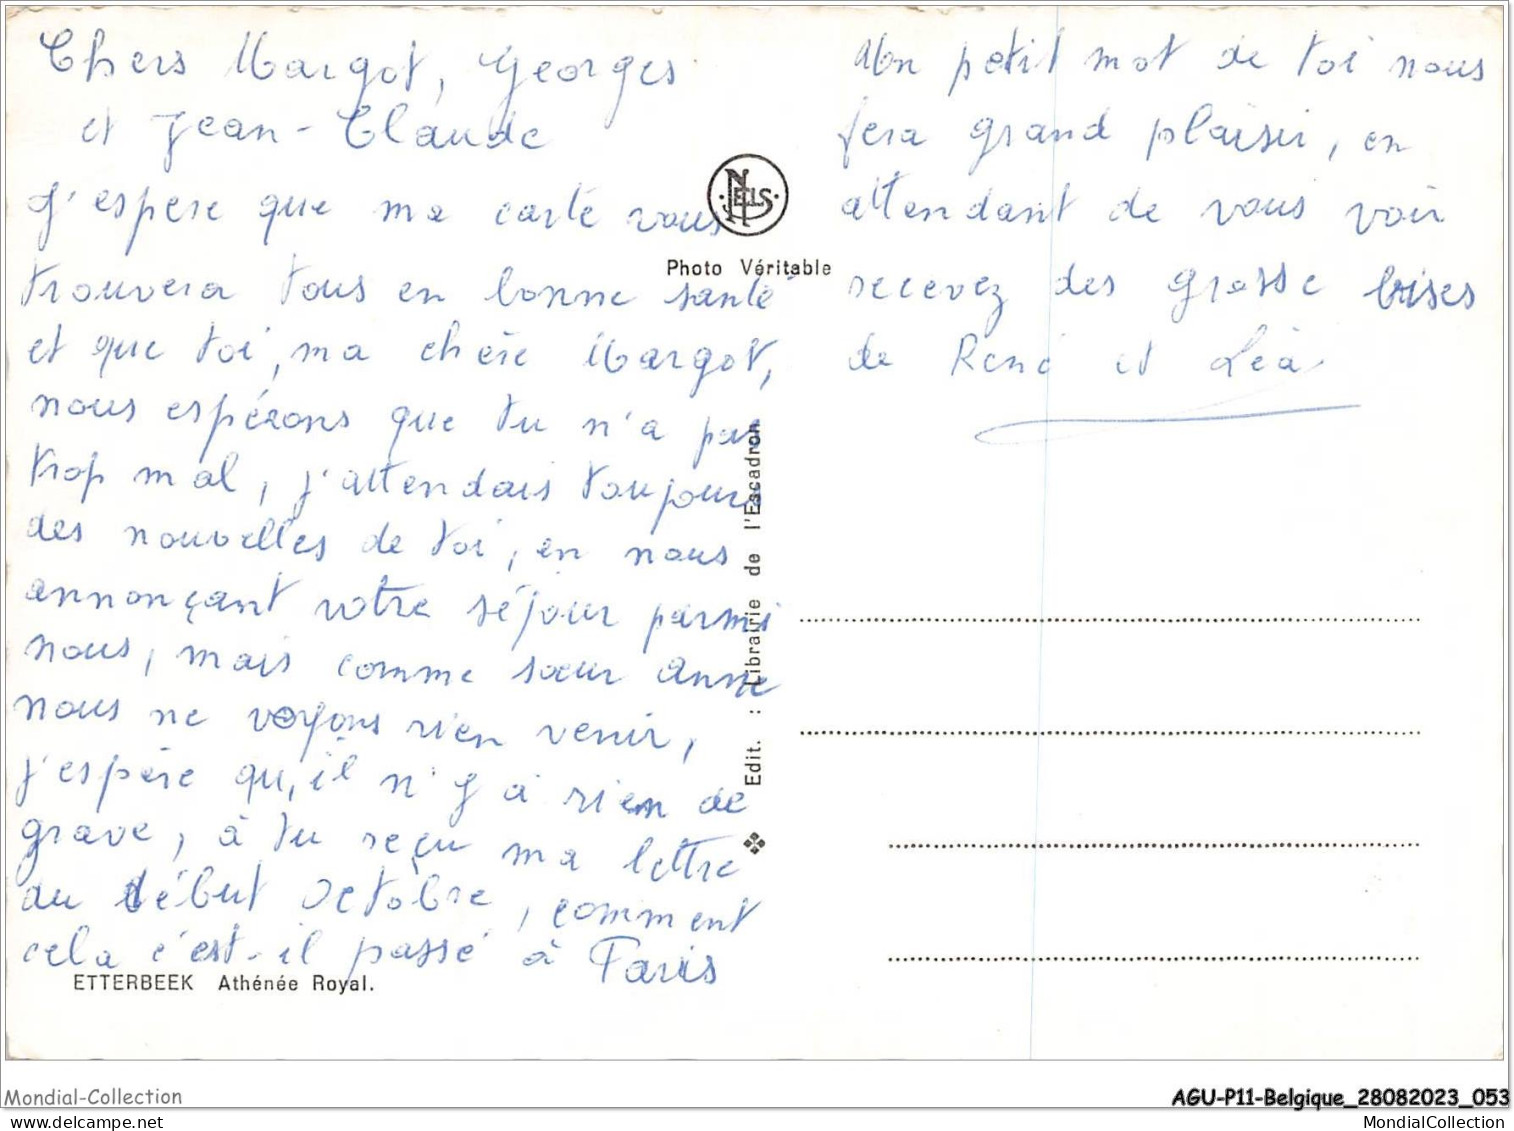 Chers Margot, Georges
et Jean-Claude
J'espere que ma carte vous
trouvera tous en bonne santé
et que toi, ma chère Margot,
nous espérons que tu n'a pas
trop mal, j'attendais toujours
des nouvelles de toi, en nous
annonçant votre séjour parmi
nous, mais comme sœur anne
nous ne voyons rien venir,
j'espère qu'il n'y à rien de
grave, à tu reçu ma lettre
au début octobre, comment
cela c'est-il passé à Paris
ETTERBEEK Athénée Royal.
NELS
Photo Véritable
Edit. : Librairie de l'Escadron
Un petit mot de toi nous
fera grand plaisir, en
attendant de vous voir
recevez des grosse bises
de René et Léa
Mondial-Collection
AGU-P11-Belgique_28082023_053
MondialCollection